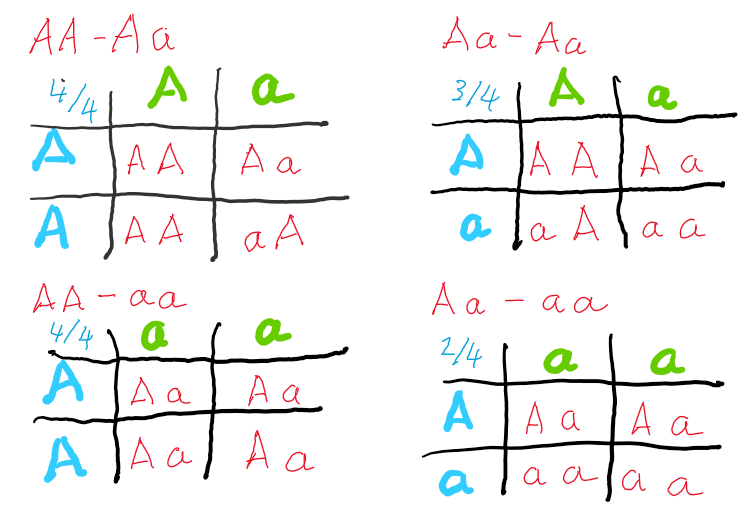 AA - Aa
4/4 A a
A AA Aa
A AA aA
Aa - Aa
3/4 A a
A AA Aa
a aA aa
AA - aa
4/4 a a
A Aa Aa
A Aa Aa
Aa - aa
2/4 a a
A Aa Aa
a aa aa